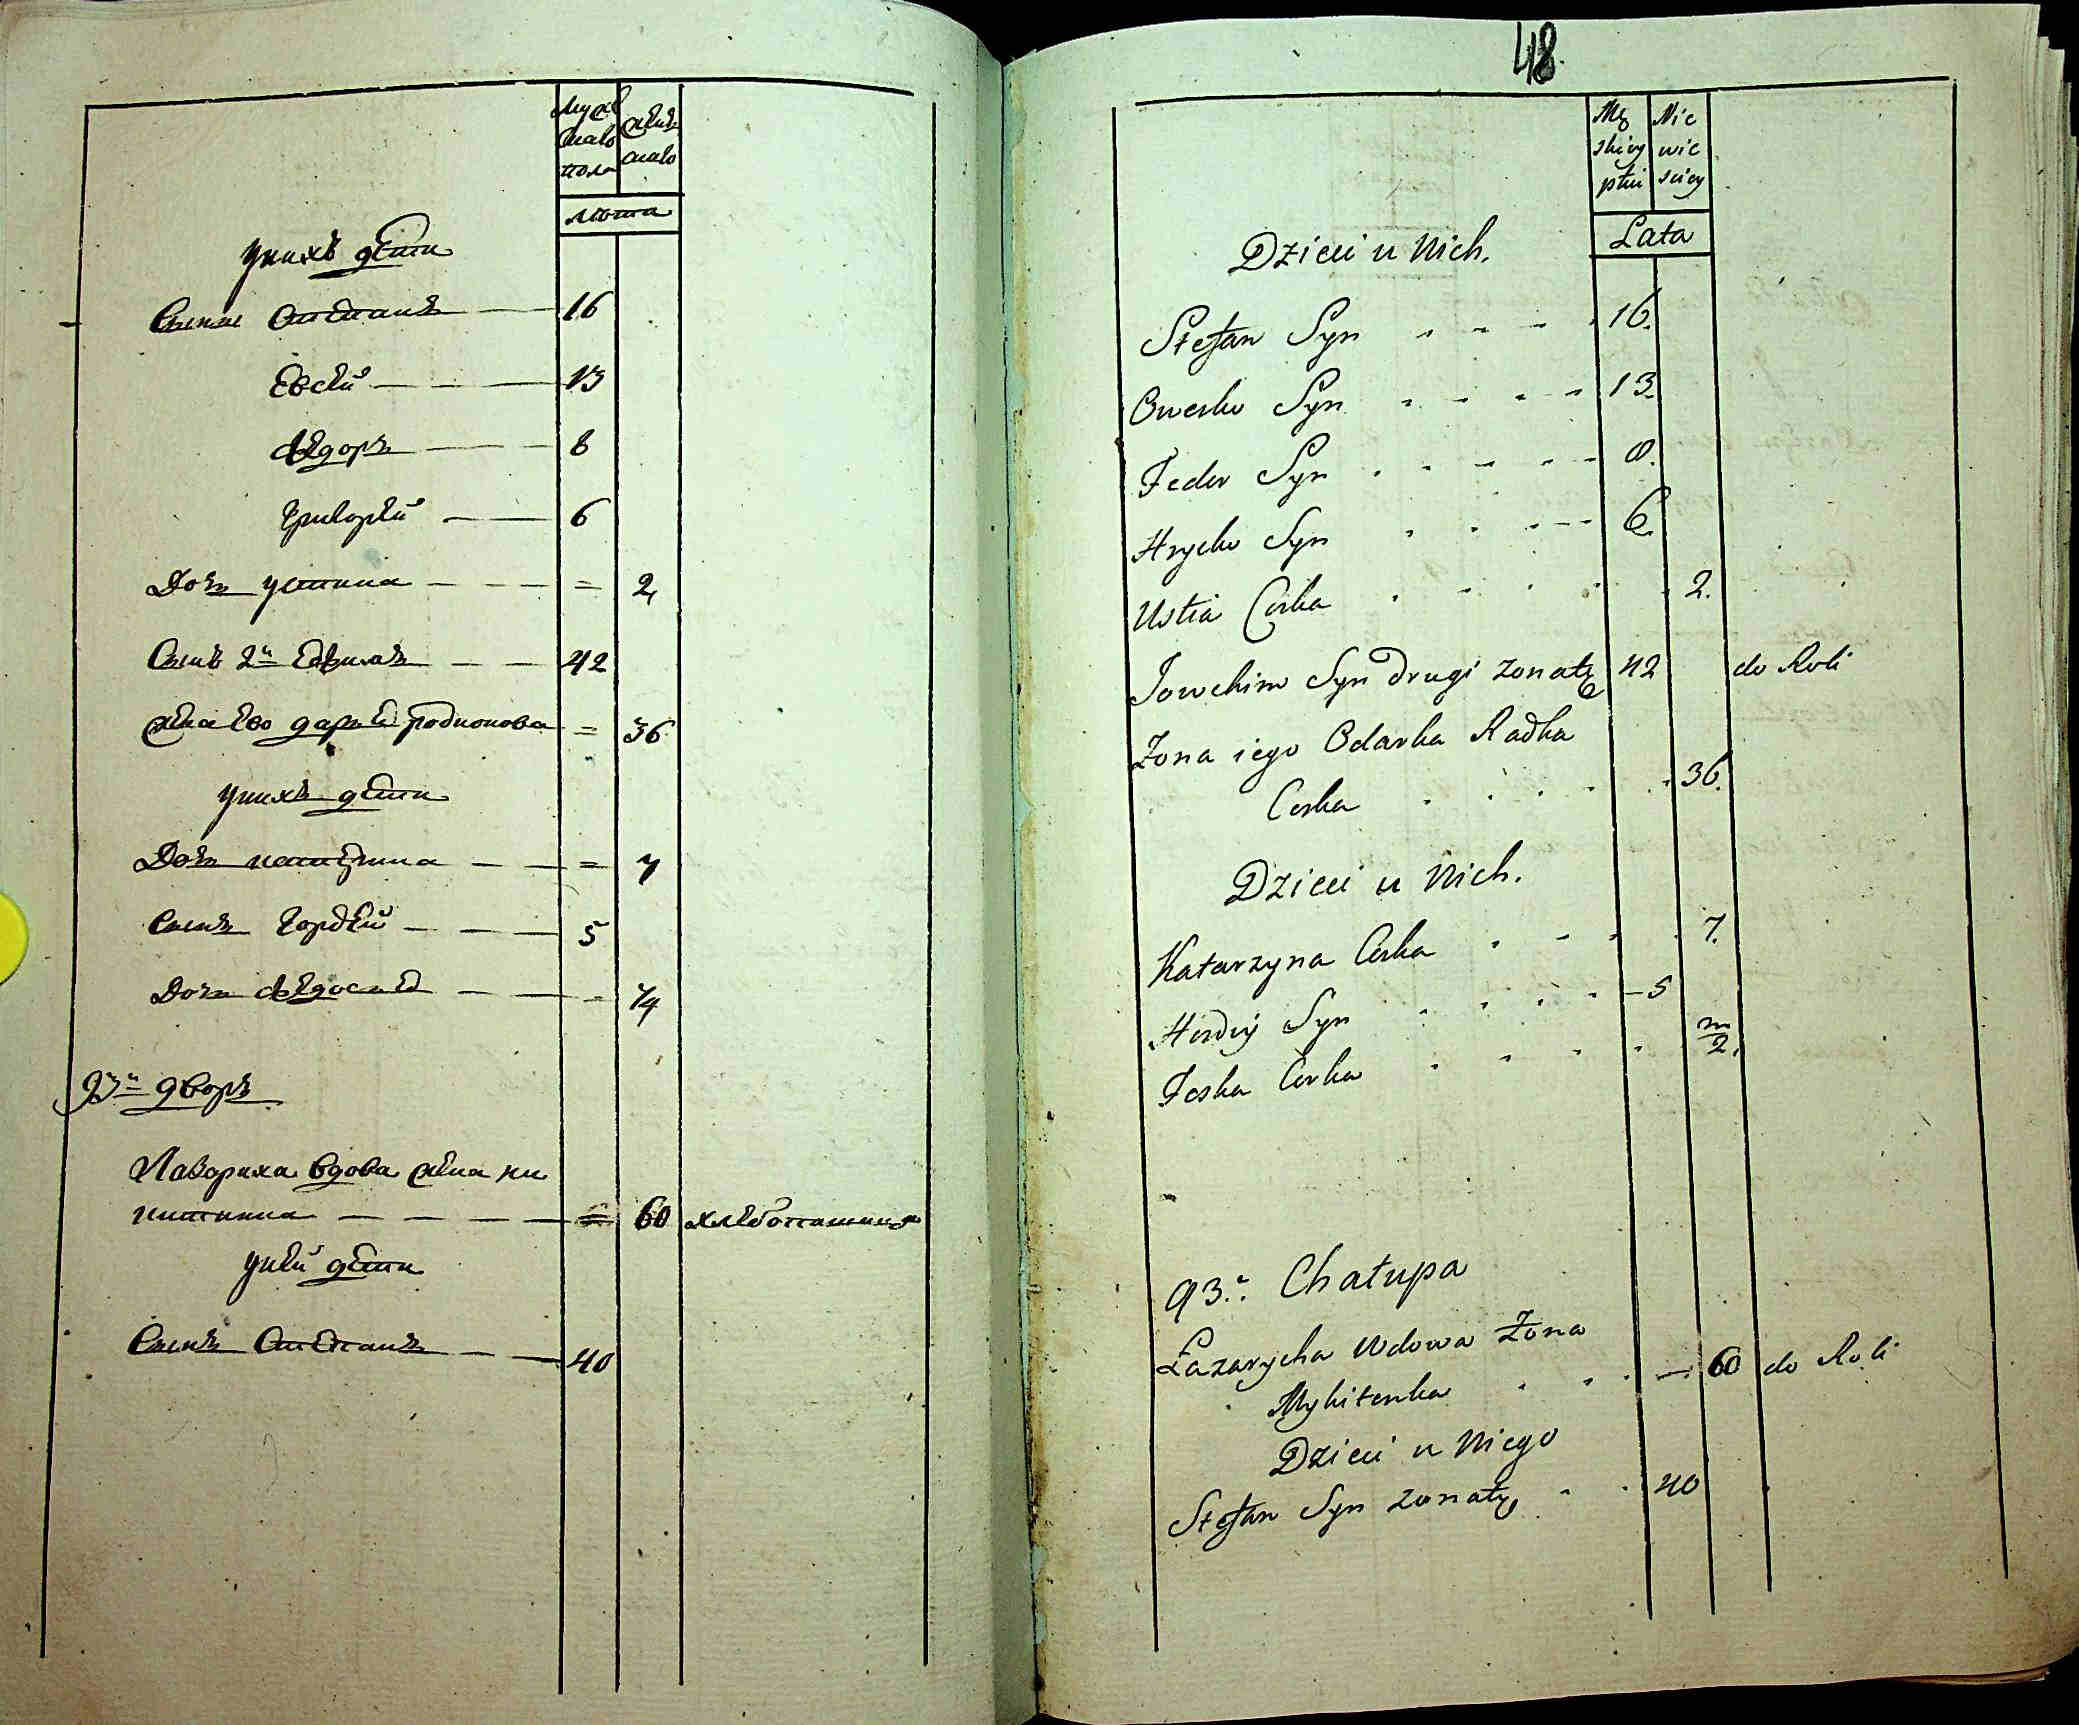 Муже
скаго
пола
женъ
скаго
лѣта
у нихъ дѣти
Сыны Степанъ 16
Евсѣй 13
Ѳедоръ 8
Григорѣй 6
Дочь устина = 2
Сынъ 2й Евфимъ 42
жена ево дарья родионова = 36
у нихъ дѣти
Дочь катерина = 7
Сынъ Гордѣй 5
Дочь Ѳедосья
93й дворъ
Лазориха вдова жена ни
китина = 60 хлебопашецъ
у ней дѣти
Сынъ Степанъ 40
48.
Mę
skiey
płci
Nie
wie
sciey
Lata
Dzieci u Nich.
Stefan Syn 16.
Owerko Syn 13.
Feder Syn 8.
Hrycko Syn 6.
Ustia Corka 2.
Jowchim Syn drugi zonaty 42 do Roli
Żona iego Odarka Radka
Corka 36.
Dzieci u Nich.
Katarzyna Corka 7.
Hordiy Syn 5
Feska Corka m/2.
93. Chałupa
Łazarycha Wdowa Żona
Mykitenka 60 do Roli
Dzieci u Niego
Stefan Syn zonaty 40